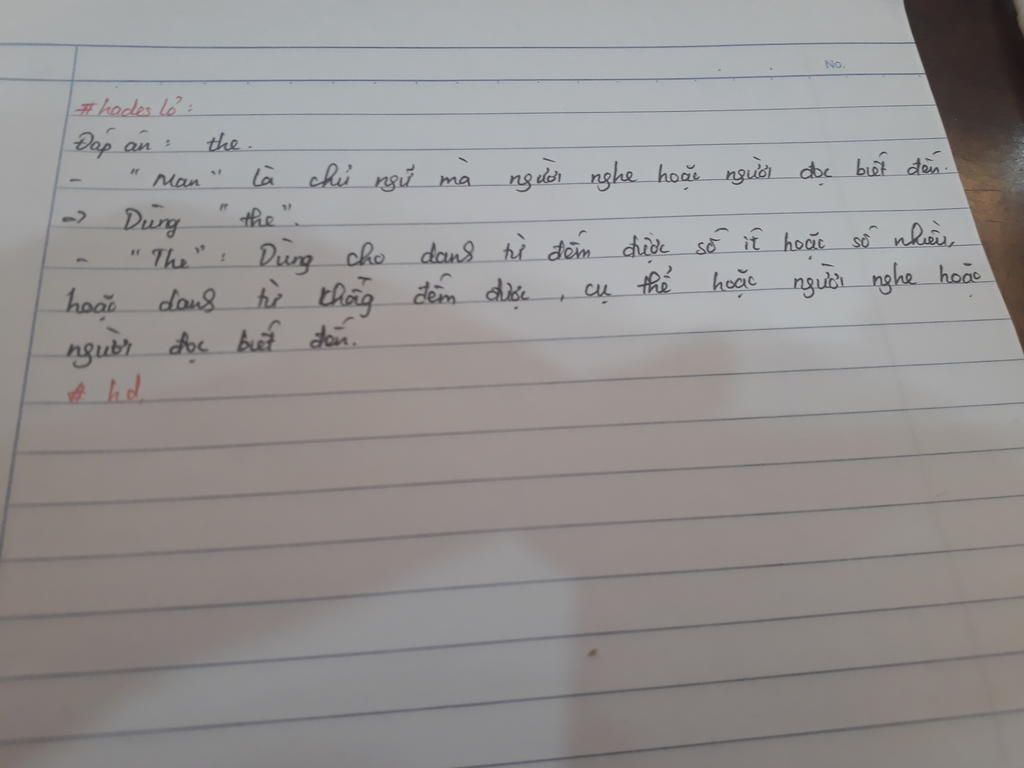 No.
#hades lỏ:
Đáp án: the.
- "Man" là chủ ngữ mà người nghe hoặc người đọc biết đến.
-> Dùng "the".
- "The": Dùng cho danh từ đếm được số ít hoặc số nhiều,
hoặc danh từ không đếm được, cụ thể hoặc người nghe hoặc
người đọc biết đến.
# hd.